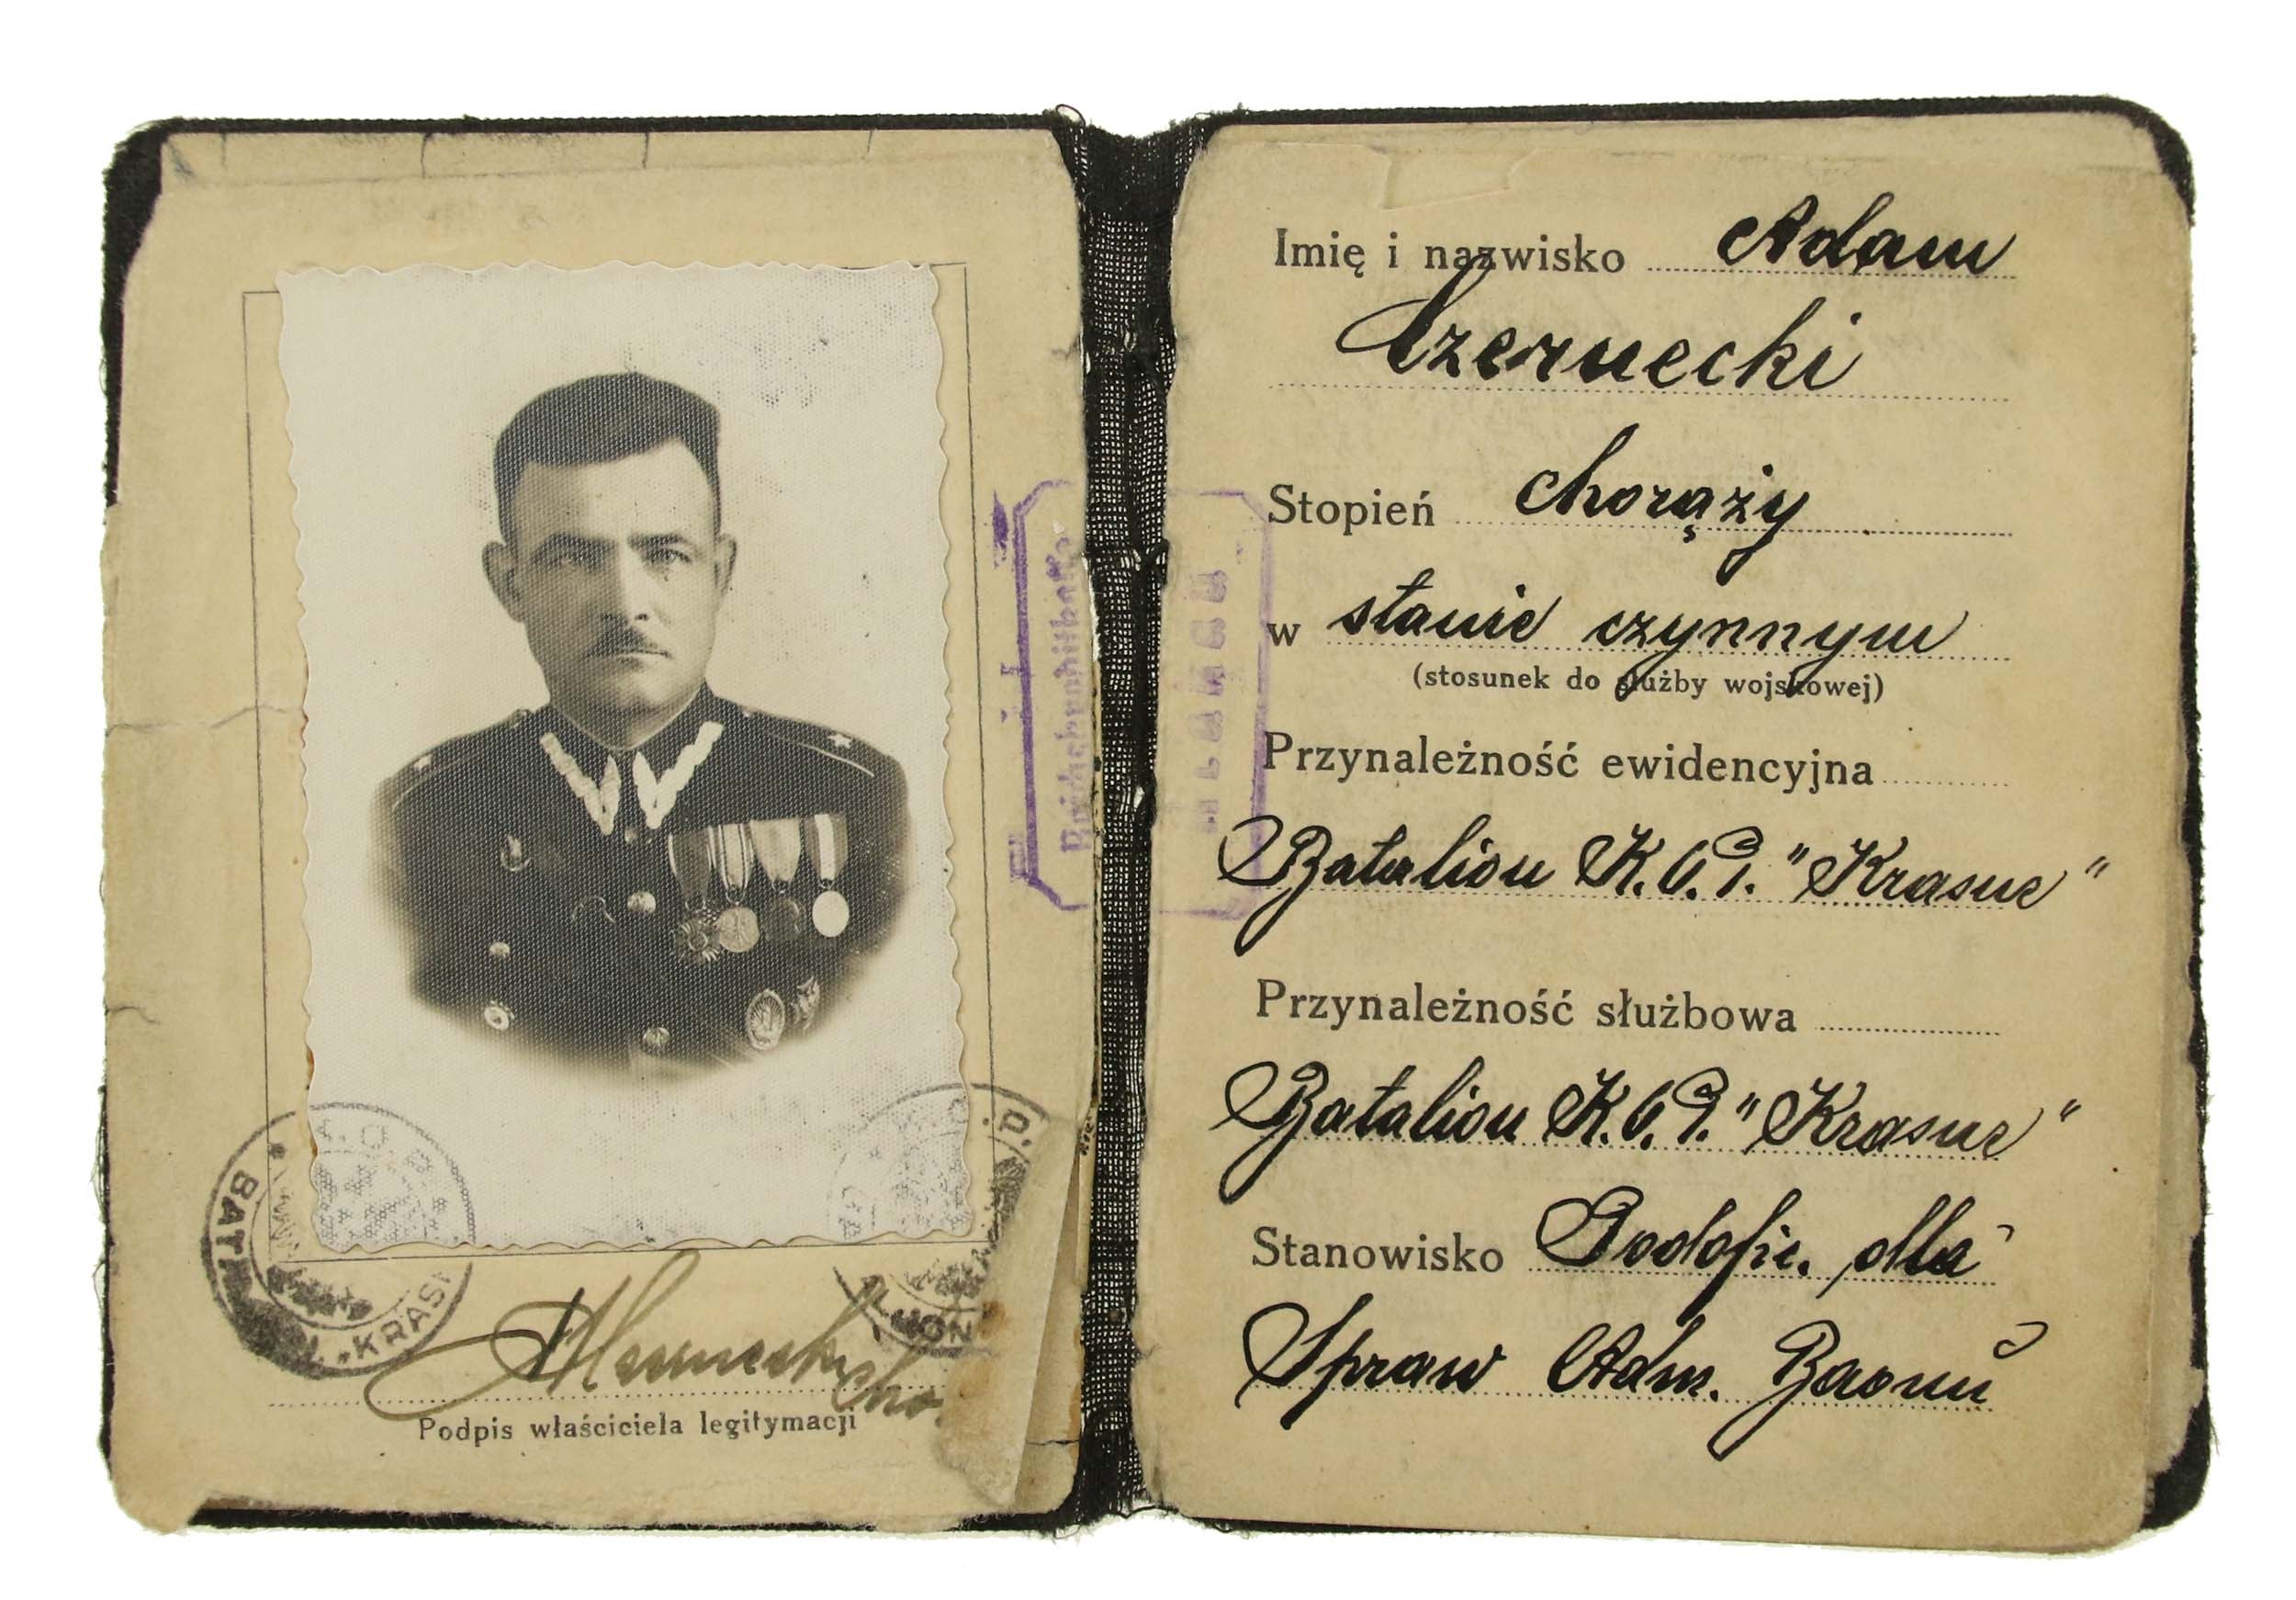 K.O.P.
BATAL
"KRAS
K.O.P.
JON
Podpis właściciela legitymacji
Reichskreditkasse
Imię i nazwisko Adam
Czernecki
Stopień chorąży
w stanie czynnym
(stosunek do służby wojskowej)
Przynależność ewidencyjna
Batalion K.O.P. "Krasne"
Przynależność służbowa
Batalion K.O.P. "Krasne"
Stanowisko Podofic. dla
Spraw Adm. Baonu